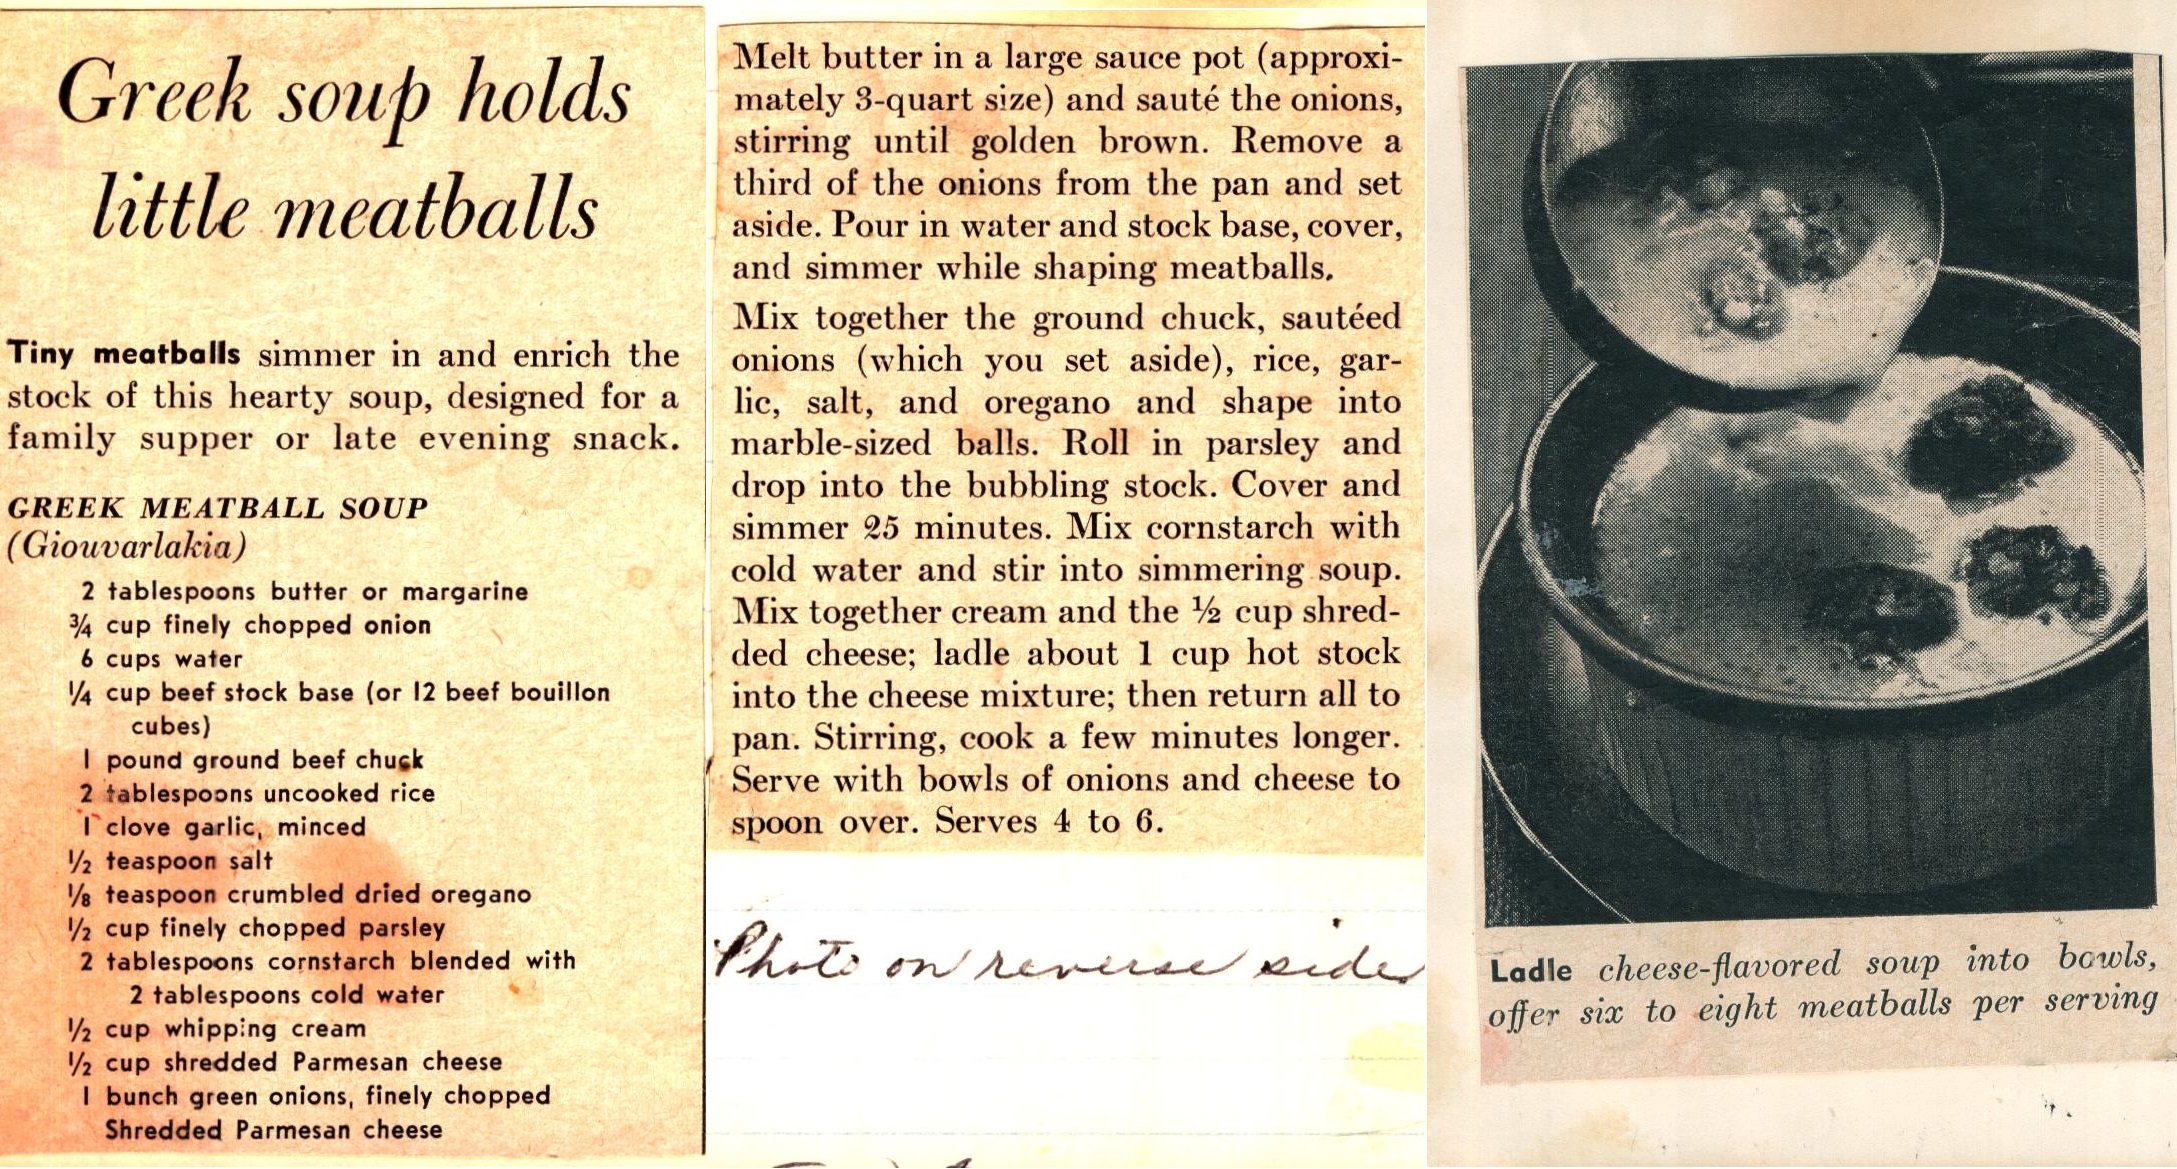 Greek soup holds
little meatballs
Tiny meatballs simmer in and enrich the
stock of this hearty soup, designed for a
family supper or late evening snack.
GREEK MEATBALL SOUP
(Giouvarlakia)
2 tablespoons butter or margarine
¾ cup finely chopped onion
6 cups water
¼ cup beef stock base (or 12 beef bouillon
cubes)
1 pound ground beef chuck
2 tablespoons uncooked rice
1 clove garlic, minced
½ teaspoon salt
⅛ teaspoon crumbled dried oregano
½ cup finely chopped parsley
2 tablespoons cornstarch blended with
2 tablespoons cold water
½ cup whipping cream
½ cup shredded Parmesan cheese
1 bunch green onions, finely chopped
Shredded Parmesan cheese
Melt butter in a large sauce pot (approxi-
mately 3-quart size) and sauté the onions,
stirring until golden brown. Remove a
third of the onions from the pan and set
aside. Pour in water and stock base, cover,
and simmer while shaping meatballs.
Mix together the ground chuck, sautéed
onions (which you set aside), rice, gar-
lic, salt, and oregano and shape into
marble-sized balls. Roll in parsley and
drop into the bubbling stock. Cover and
simmer 25 minutes. Mix cornstarch with
cold water and stir into simmering soup.
Mix together cream and the ½ cup shred-
ded cheese; ladle about 1 cup hot stock
into the cheese mixture; then return all to
pan. Stirring, cook a few minutes longer.
Serve with bowls of onions and cheese to
spoon over. Serves 4 to 6.
Photo on reverse side
Ladle cheese-flavored soup into bowls,
offer six to eight meatballs per serving